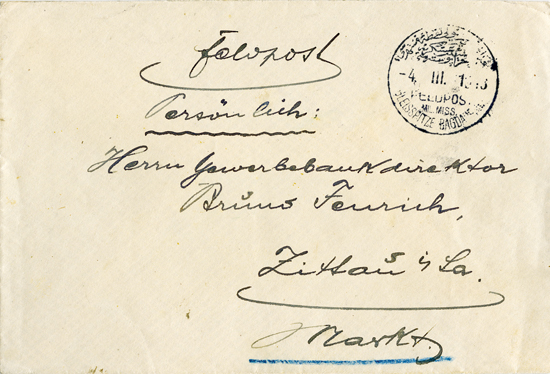 Feldpost
-4. III. 1918
FELDPOST
MIL. MISS.
GLEISSPITZE BAGDADBAHN
Persönlich:
Herrn Gewerbebankdirektor
Bruno Fenrich,
Zittau i/Sa.
Markt.